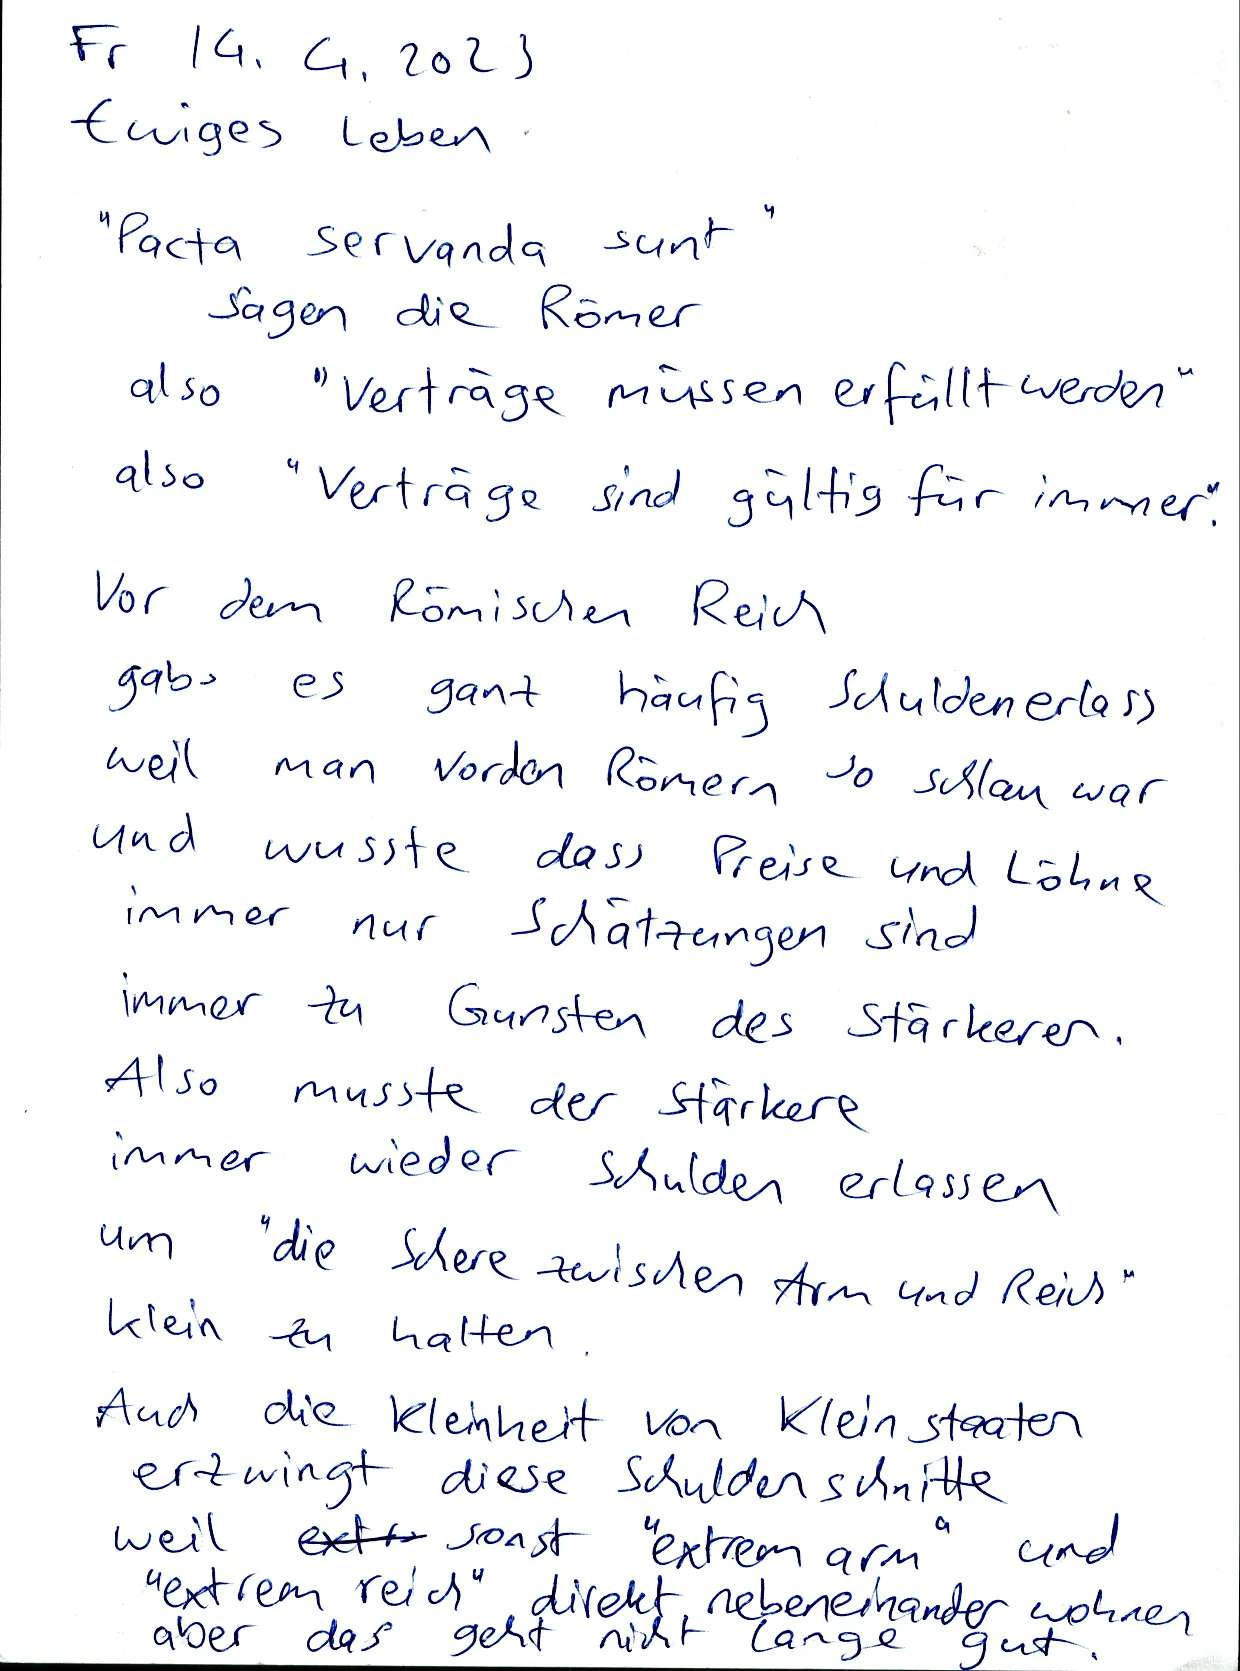 Fr 14. 4. 2023
Ewiges Leben
"Pacta servanda sunt"
sagen die Römer
also "Verträge müssen erfüllt werden"
also "Verträge sind gültig für immer".
Vor dem Römischen Reich
gabs es ganz häufig Schuldenerlass
weil man vor den Römern so schlau war
und wusste dass Preise und Löhne
immer nur Schätzungen sind
immer zu Gunsten des Stärkeren.
Also musste der Stärkere
immer wieder Schulden erlassen
um "die Schere zwischen Arm und Reich"
klein zu halten.
Auch die Kleinheit von Kleinstaaten
erzwingt diese Schuldenschnitte
weil sonst "extrem arm" und
"extrem reich" direkt nebeneinander wohnen
aber das geht nicht lange gut.